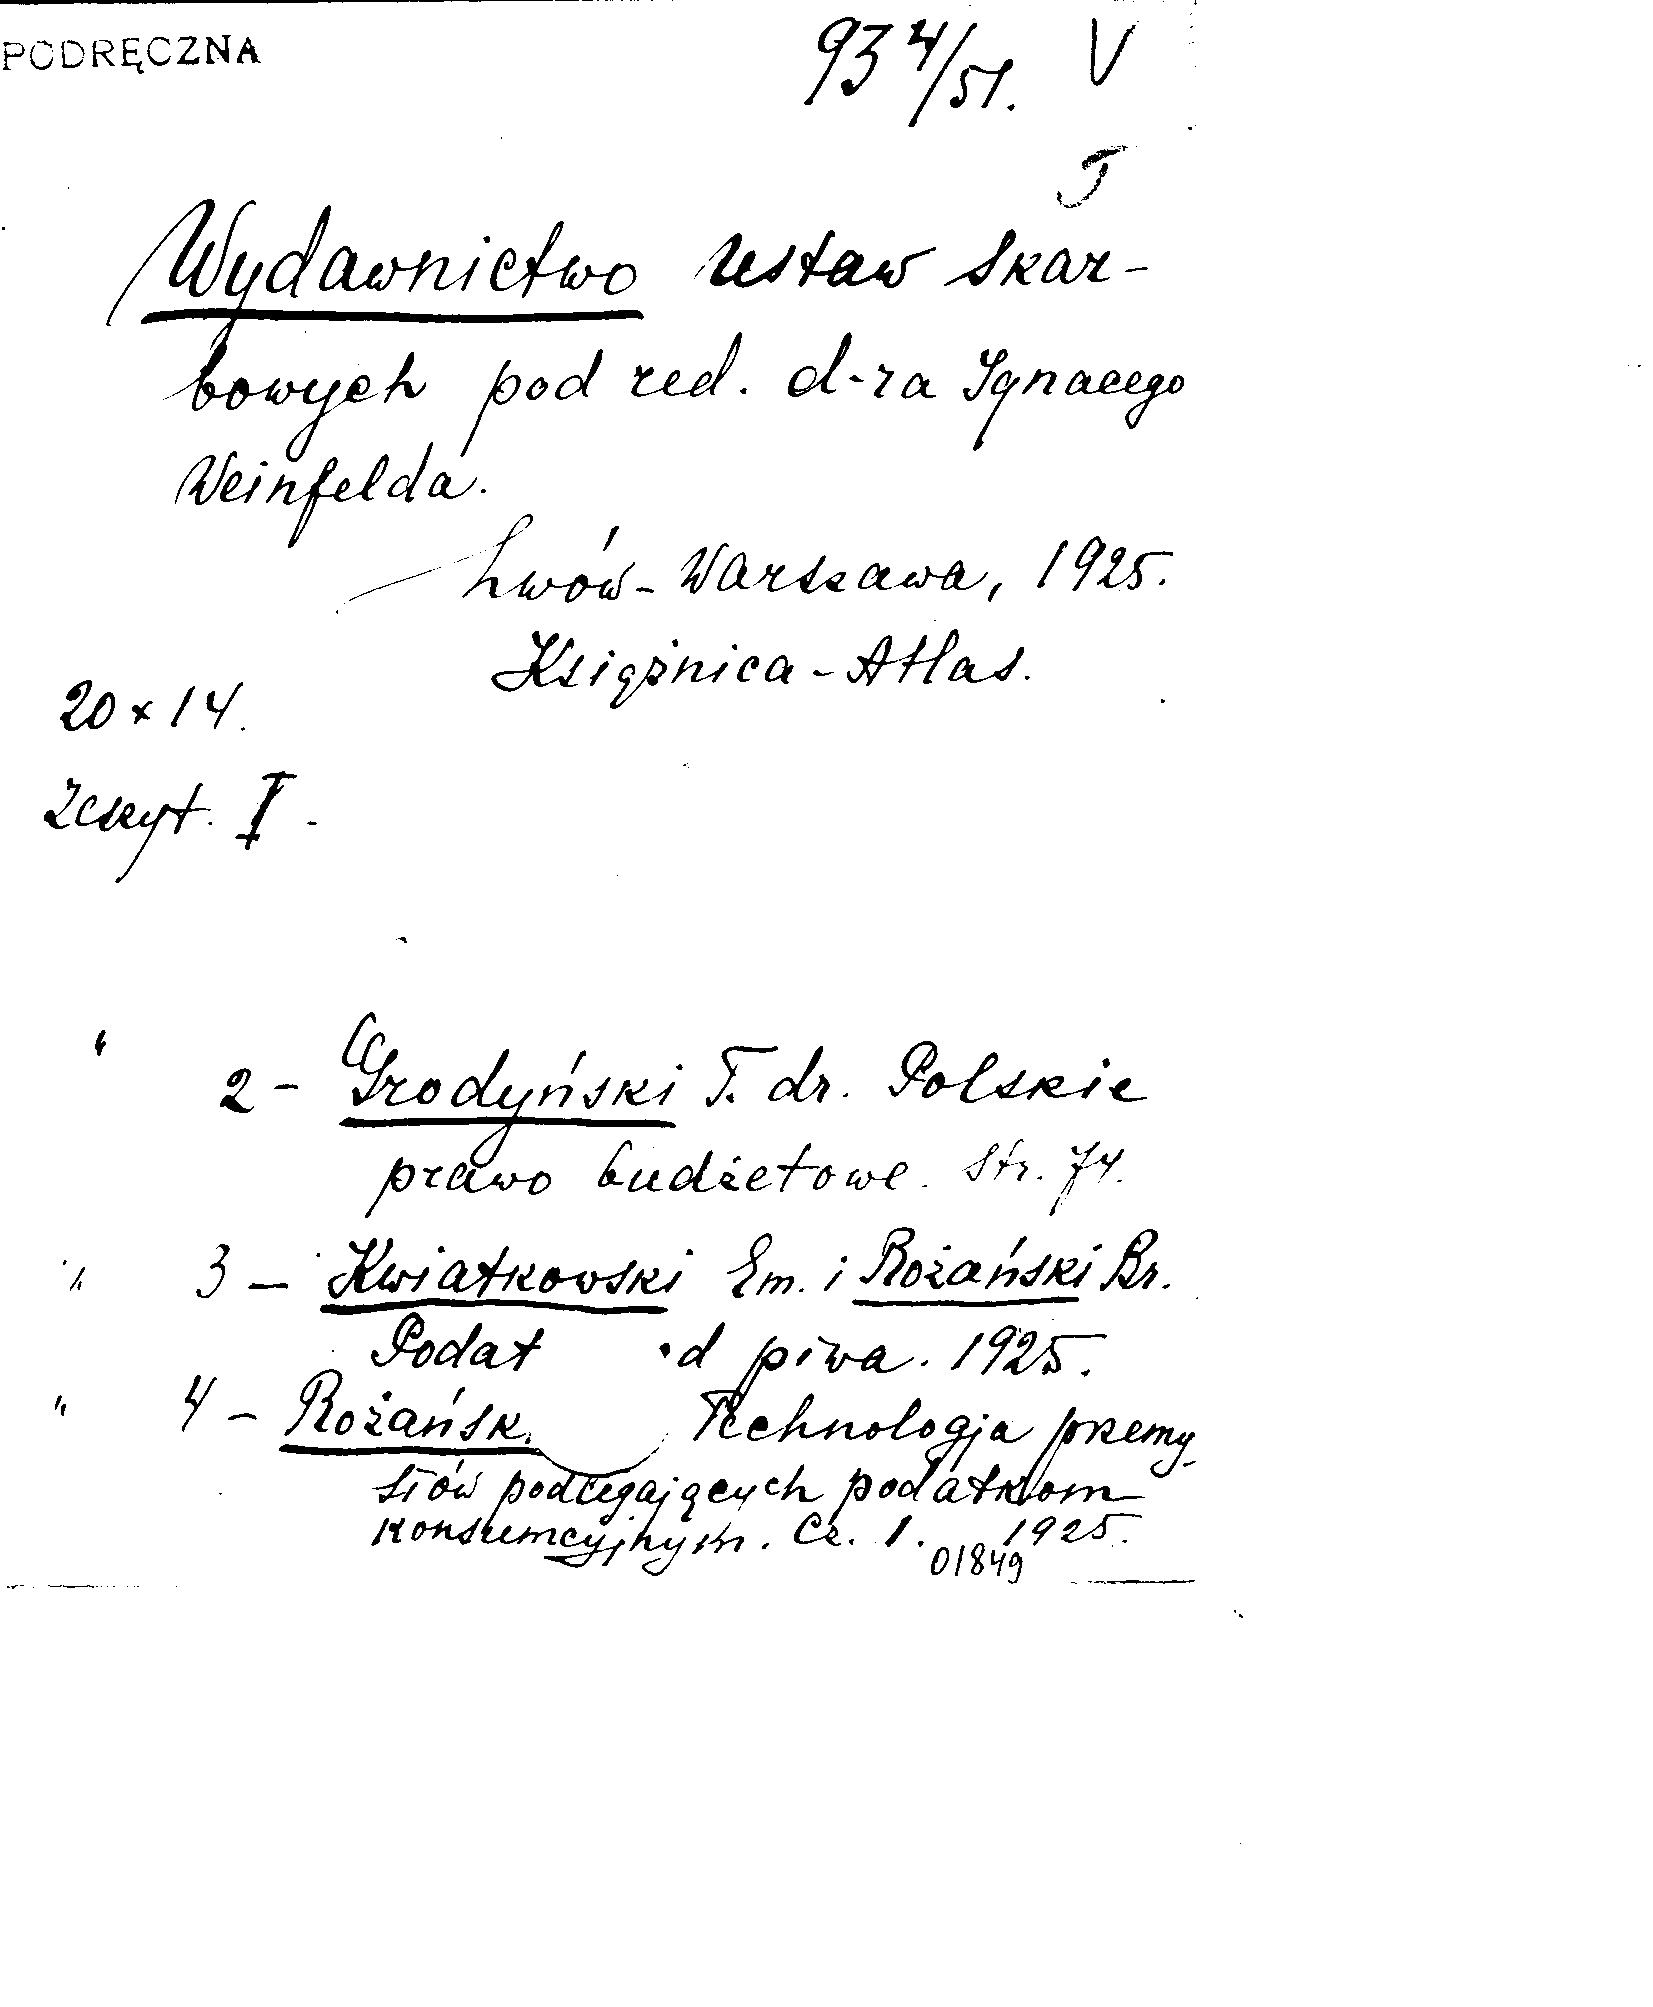 PODRĘCZNA
934/51. V
J
Wydawnictwo Ustaw Skar-
bowych pod red. d-ra Ignacego
Weinfelda.
Lwów-Warszawa, 1925.
Książnica-Atlas.
20 x 14.
Zeszyt. I.
" 2 - Grodyński T. dr. Polskie
prawo budżetowe. Str. 74.
" 3 - Kwiatkowski Em. i Rożański Br.
Podat d piwa. 1925.
" 4 - Rożańsk. Technologja przemy-
słów podlegających podatkom
konsumcyjnym. Cz. 1. 1925.
01849